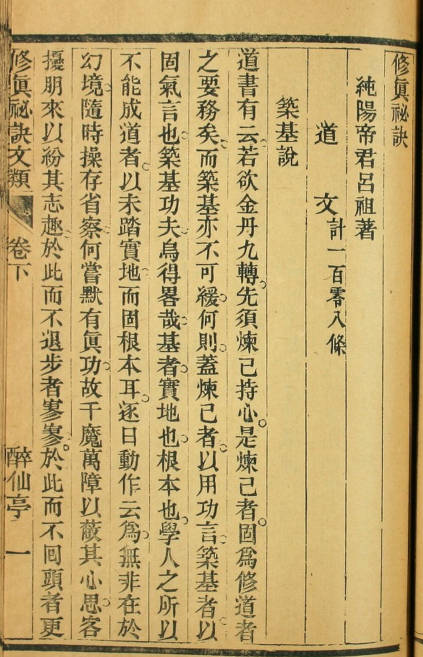 修眞祕訣
純陽帝君呂祖著
道文計一百零八條
築基說
道書有云若欲金丹九轉先須煉己持心是煉己者固爲修道者
之要務矣而築基亦不可緩何則蓋煉己者以用功言築基者以
固氣言也築基功夫烏得畧哉基者實地也根本也學人之所以
不能成道者以未踏實地而固根本耳逐日動作云爲無非在於
幻境隨時操存省察何嘗默有眞功故千魔萬障以蔽其心思客
擾朋來以紛其志趣於此而不退步者寥寥於此而不囘頭者更
修眞祕訣文類 卷下 醉仙亭 一